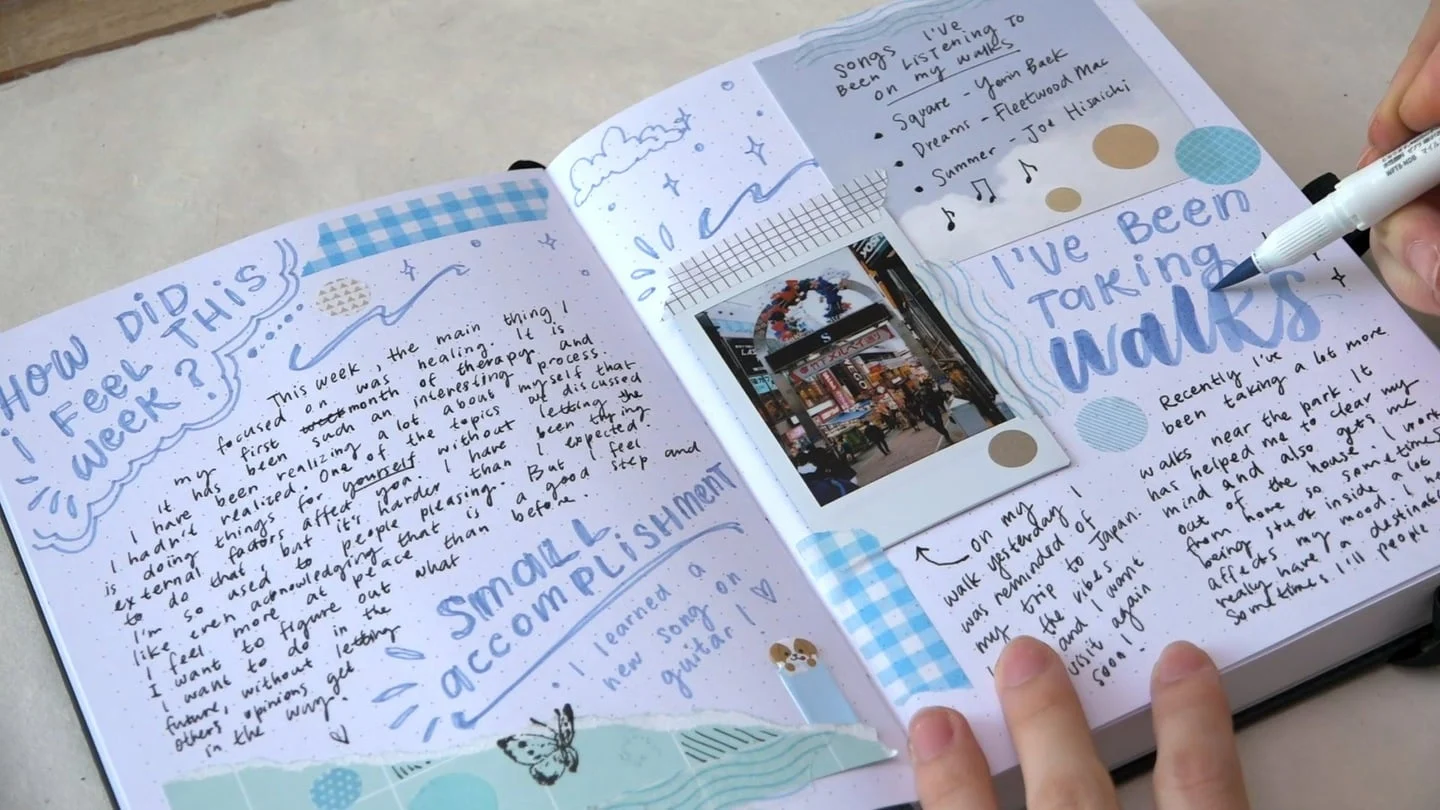 HOW DID
I FEEL THIS
WEEK?
This week, the main thing I
focused on was healing. It is
my first month of therapy and
it has been such an interesting process.
I have been realizing a lot about myself that
I hadn't realized. One of the topics we discussed
is doing things for yourself without letting the
external factors affect you. I have been trying
to do that, but it's harder than I expected.
I'm so used to people pleasing. But I feel
like even acknowledging that is a good step and
I feel more at peace than before.
I want to figure out what
I want to do in the
future, without letting
others opinions get
in the way.
small
accomplishment
• I learned a
new song on
guitar!
Songs I've
been listening to
on my walks
• Square - Yerin Baek
• Dreams - Fleetwood Mac
• Summer - Joe Hisaichi
I've been
taking
walks
Recently I've
been taking a lot more
walks near the park. It
has helped me to clear my
mind and also gets me
out of the house. I work
from home so sometimes
being stuck inside a lot
affects my mood. I
really have a
sometimes I'll people
on my
walk yesterday I
was reminded of
my trip to Japan.
the vibes
and I want
visit again
soon!